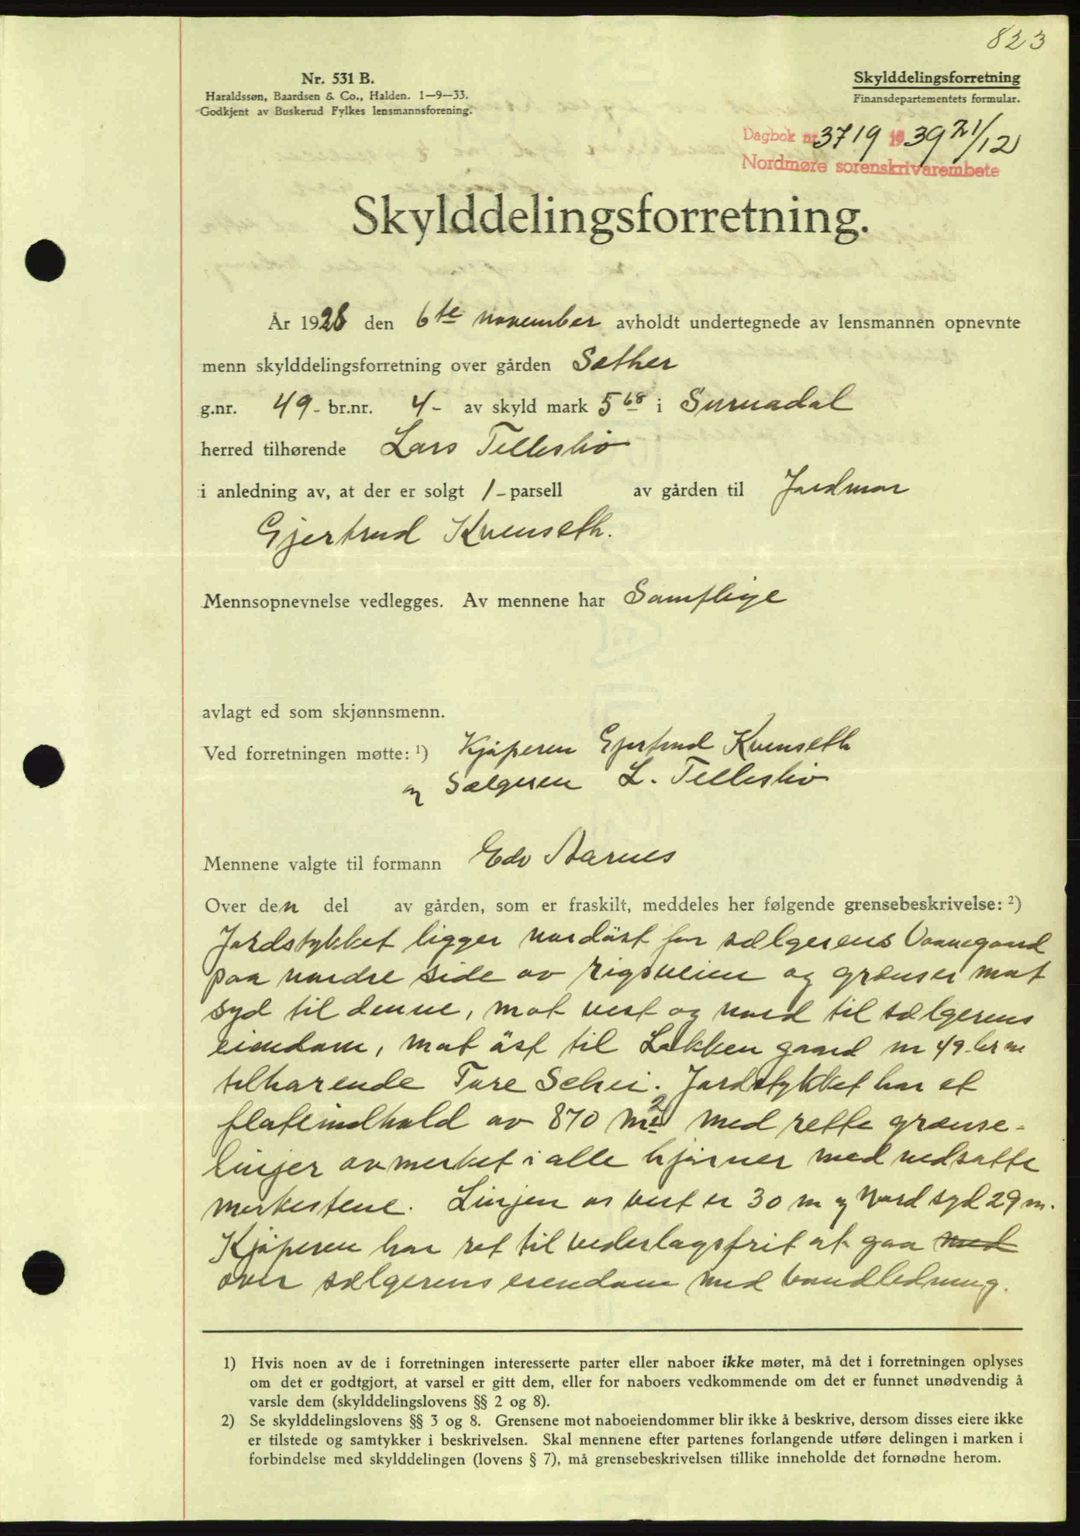 823
Nr. 531 B.
Haraldssøn, Baardsen & Co., Halden. 1—9—33.
Godkjent av Buskerud Fylkes lensmannsforening.
Skylddelingsforretning
Finansdepartementets formular.
Dagbok nr 3719 1939 21/12
Nordmøre sorenskrivarembete
Skylddelingsforretning.
År 1928 den 6te november avholdt undertegnede av lensmannen opnevnte
menn skylddelingsforretning over gården Sæther
g.nr. 49- br.nr. 4- av skyld mark 5 68 i Surnadal
herred tilhørende Lars Telleslbø
i anledning av, at der er solgt 1-parsell av gården til Jordmor
Gjertrud Kvenseth.
Mennsopnevnelse vedlegges. Av mennene har Samtlige
avlagt ed som skjønnsmenn.
Ved forretningen møtte: 1) Kjøperen Gjertrud Kvenseth
og Sælgeren L. Tellesbø
Mennene valgte til formann Edv Aarnes
Over den del av gården, som er fraskilt, meddeles her følgende grensebeskrivelse: 2)
Jordstykket ligger nordöst for sælgerens Vaanegaard
paa nordre side av rigsveien og grænser mot
syd til denne, mot vest og nord til sælgerens
eiendom, mot öst til Løkken gaard nr 49 br nr
tilhørende Tore Schei. Jordstykket har et
flateindhold av 870 m2 med rette grænse-
linjer avmerket i alle hjørner med nedsatte
merkestene. Linjen øs vest er 30 m og Nord syd 29 m.
Kjøperen har ret til vederlagsfrit at gaa med
over sælgerens eiendom med vandledning.
1) Hvis noen av de i forretningen interesserte parter eller naboer ikke møter, må det i forretningen oplyses
om det er godtgjort, at varsel er gitt dem, eller for naboers vedkommende om det er funnet unødvendig å
varsle dem (skylddelingslovens §§ 2 og 8).
2) Se skylddelingslovens §§ 3 og 8. Grensene mot naboeiendommer blir ikke å beskrive, dersom disses eiere ikke
er tilstede og samtykker i beskrivelsen. Skal mennene efter partenes forlangende utføre delingen i marken i
forbindelse med skylddelingen (lovens § 7), må grensebeskrivelsen tillike inneholde det fornødne herom.